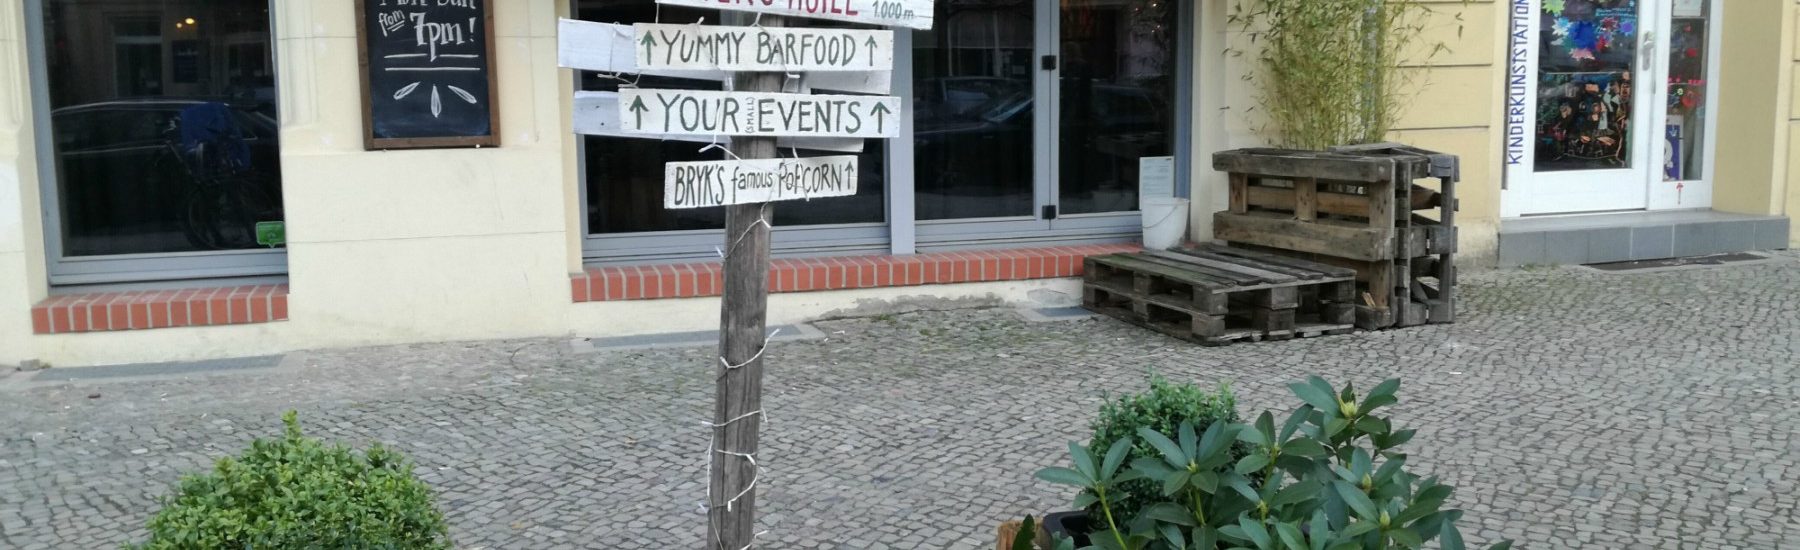 from
7pm!
1.000m
↑YUMMY BARFOOD↑
↑YOUR (SMALL) EVENTS↑
BRYK'S famous POPCORN↑
KINDERKUNSTSTATION